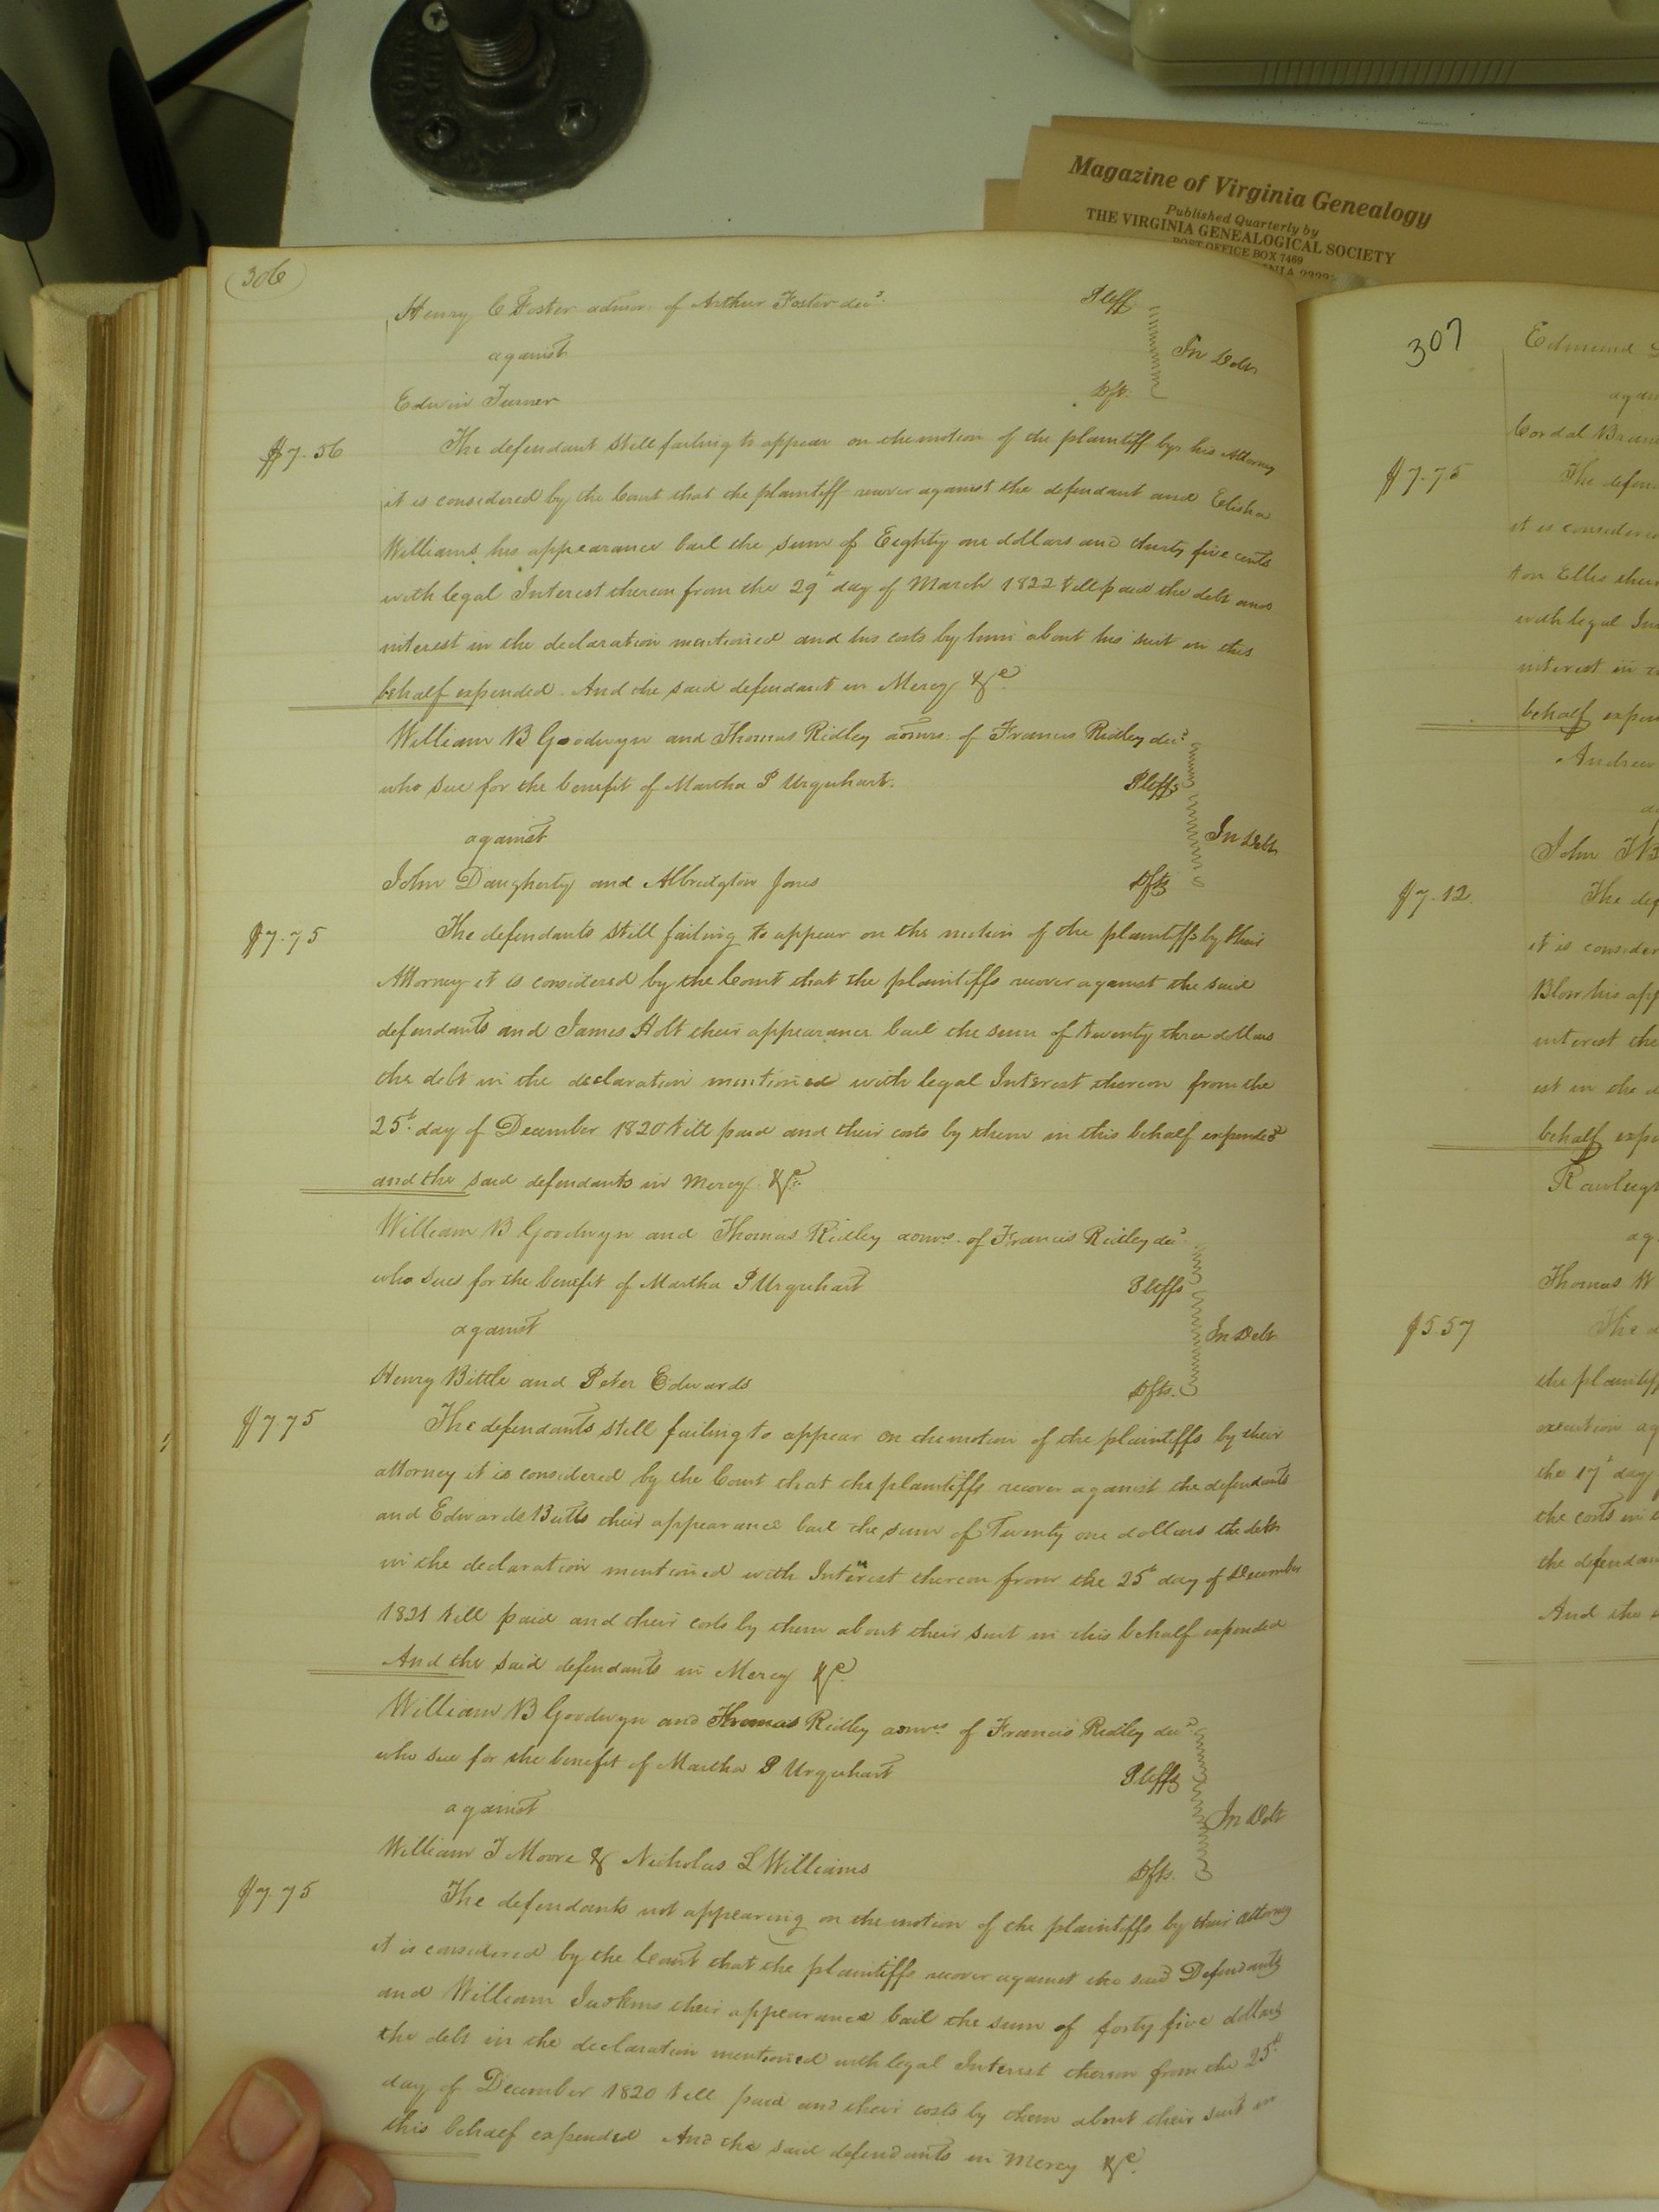 Magazine of Virginia Genealogy
Published Quarterly by
THE VIRGINIA GENEALOGICAL SOCIETY
POST OFFICE BOX 7469
306
Henry C Foster admor. of Arthur Foster decd. Pleff
against In Debt
Edwin Turner Dft.
$7.56 The defendant still failing to appear on the motion of the plaintiff by his Attorney
it is considered by the Court that the plaintiff recover against the defendant and Elisha
Williams his appearance bail the sum of Eighty one dollars and thirty five cents
with legal Interest thereon from the 29th day of March 1822 till paid the debt and
interest in the declaration mentioned and his costs by him about his suit in this
behalf expended. And the said defendant in Mercy &c.
William B Goodwyn and Thomas Ridley admrs. of Francis Ridley decd.
who sue for the benefit of Martha P Urquhart. Pleffs
against In Debt
John Daugherty and Albridgton Jones Dfts
$7.75 The defendants still failing to appear on the motion of the plaintiffs by their
Attorney it is considered by the Court that the plaintiffs recover against the said
defendants and James Holt their appearance bail the sum of twenty three dollars
the debt in the declaration mentioned with legal Interest thereon from the
25t. day of December 1820 till paid and their costs by them in this behalf expended
and the said defendants in Mercy &c.
William B Goodwyn and Thomas Ridley admrs. of Francis Ridley decd.
who sues for the benefit of Martha P Urquhart Pleffs
against In Debt
Henry Bittle and Peter Edwards Dfts.
$7.75 The defendants still failing to appear on the motion of the plaintiffs by their
attorney it is considered by the Court that the plaintiffs recover against the defendants
and Edwards Butts their appearance bail the sum of Twenty one dollars the debt
in the declaration mentioned with Interest thereon from the 25th day of December
1821 till paid and their costs by them about their suit in this behalf expended
And the said defendants in Mercy &c.
William B Goodwyn and Thomas Ridley admrs of Francis Ridley decd.
who sue for the benefit of Martha P Urquhart Pleffs
against In Debt
William T Moore & Nicholas L Williams Dfts.
$7.75 The defendants not appearing on the motion of the plaintiffs by their attorney
it is considered by the Court that the plaintiffs recover against the said Defendants
and William Judkins their appearance bail the sum of forty five dollars
the debt in the declaration mentioned with legal Interest thereon from the 25th
day of December 1820 till paid and their costs by them about their suit in
this behalf expended And the said defendants in Mercy &c.
307
Edmund
against
Cordal
$7.75 The
it is
ton Ellis
with legal
interest in
behalf
Andrew
John
$7.12. The
it is
Blow his
interest
est in the
behalf
Rawleigh
Thomas W
$5.57 The
the plaintiff
execution
the 17th day
the costs in
the
And the